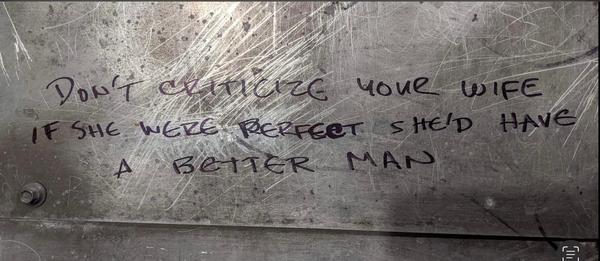 DON'T CRITICIZE YOUR WIFE
IF SHE WERE PERFECT SHE'D HAVE
A BETTER MAN